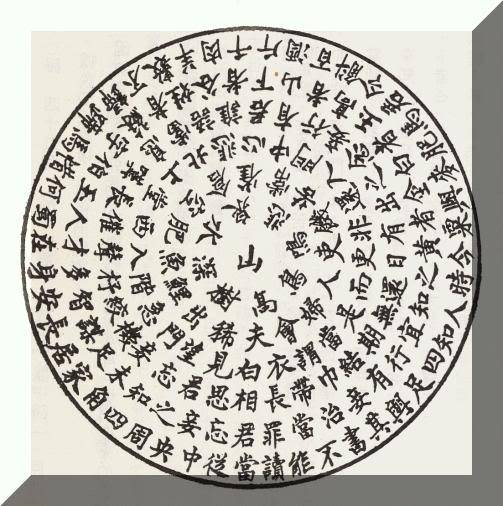 山樹高鳥鳴悲泉水深鯉魚肥空倉雀常苦飢吏人婦會夫稀出門望見白衣謂當是而更非還入門中心悲北上堂西入階急機絞杼聲催長歎息當語誰君有行妾念之出有日還無期結巾帶長相思君忘妾未知之妾忘君罪當治妾有行宜知之黃者金白者玉高者山下者谷姓者蘇字伯玉人才多智謀足家居長安身在蜀何惜馬蹄歸不數羊肉千斤酒百斛令君馬肥麥與粟今時人知四足與其書不能讀當從中央周四角